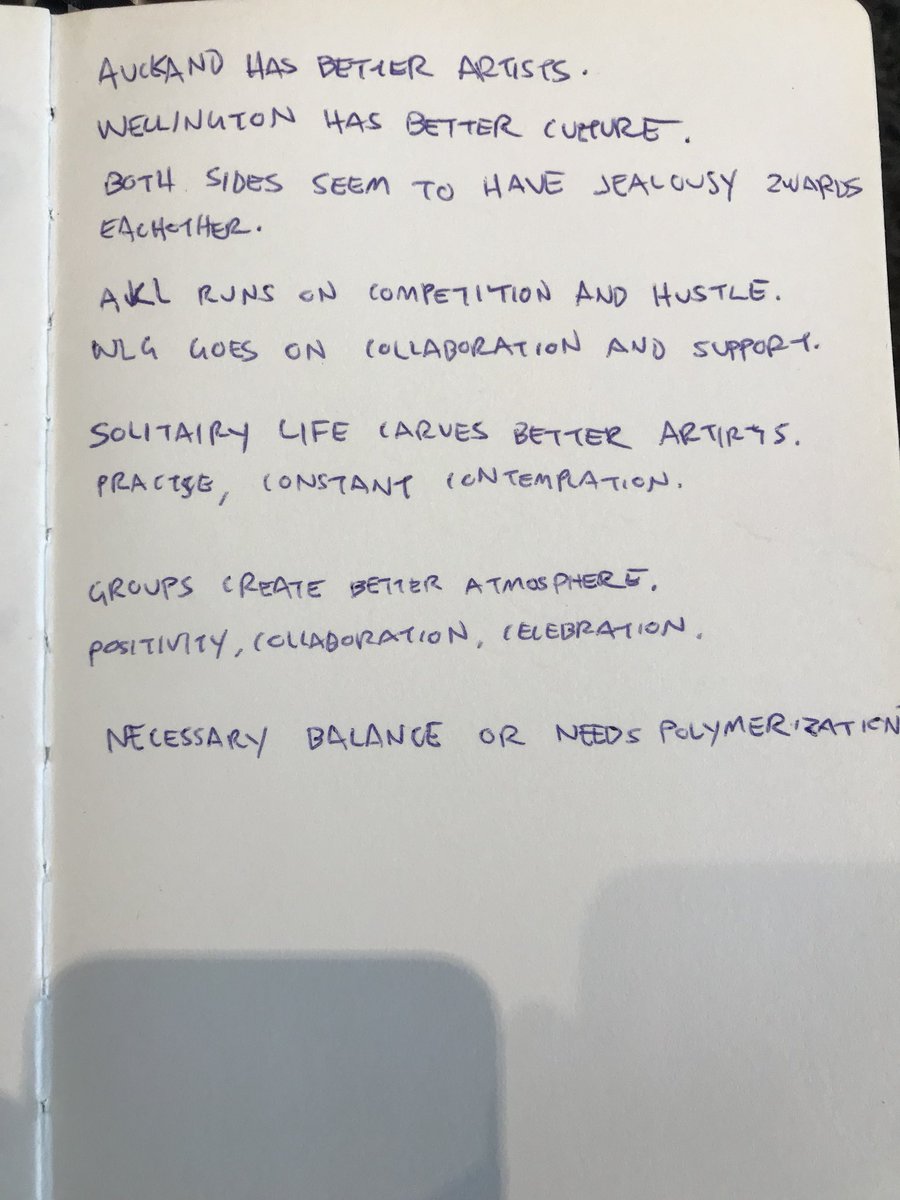 AUCKAND HAS BETTER ARTISTS.
WELLINGTON HAS BETTER CULTURE.
BOTH SIDES SEEM TO HAVE JEALOUSY 2WARDS
EACHOTHER.
AKL RUNS ON COMPETITION AND HUSTLE.
WLG GOES ON COLLABORATION AND SUPPORT.
SOLITAIRY LIFE CARVES BETTER ARTISTS.
PRACTISE, CONSTANT CONTEMPLATION.
GROUPS CREATE BETTER ATMOSPHERE.
POSITIVITY, COLLABORATION, CELEBRATION.
NECESSARY BALANCE OR NEEDS POLYMERIZATION